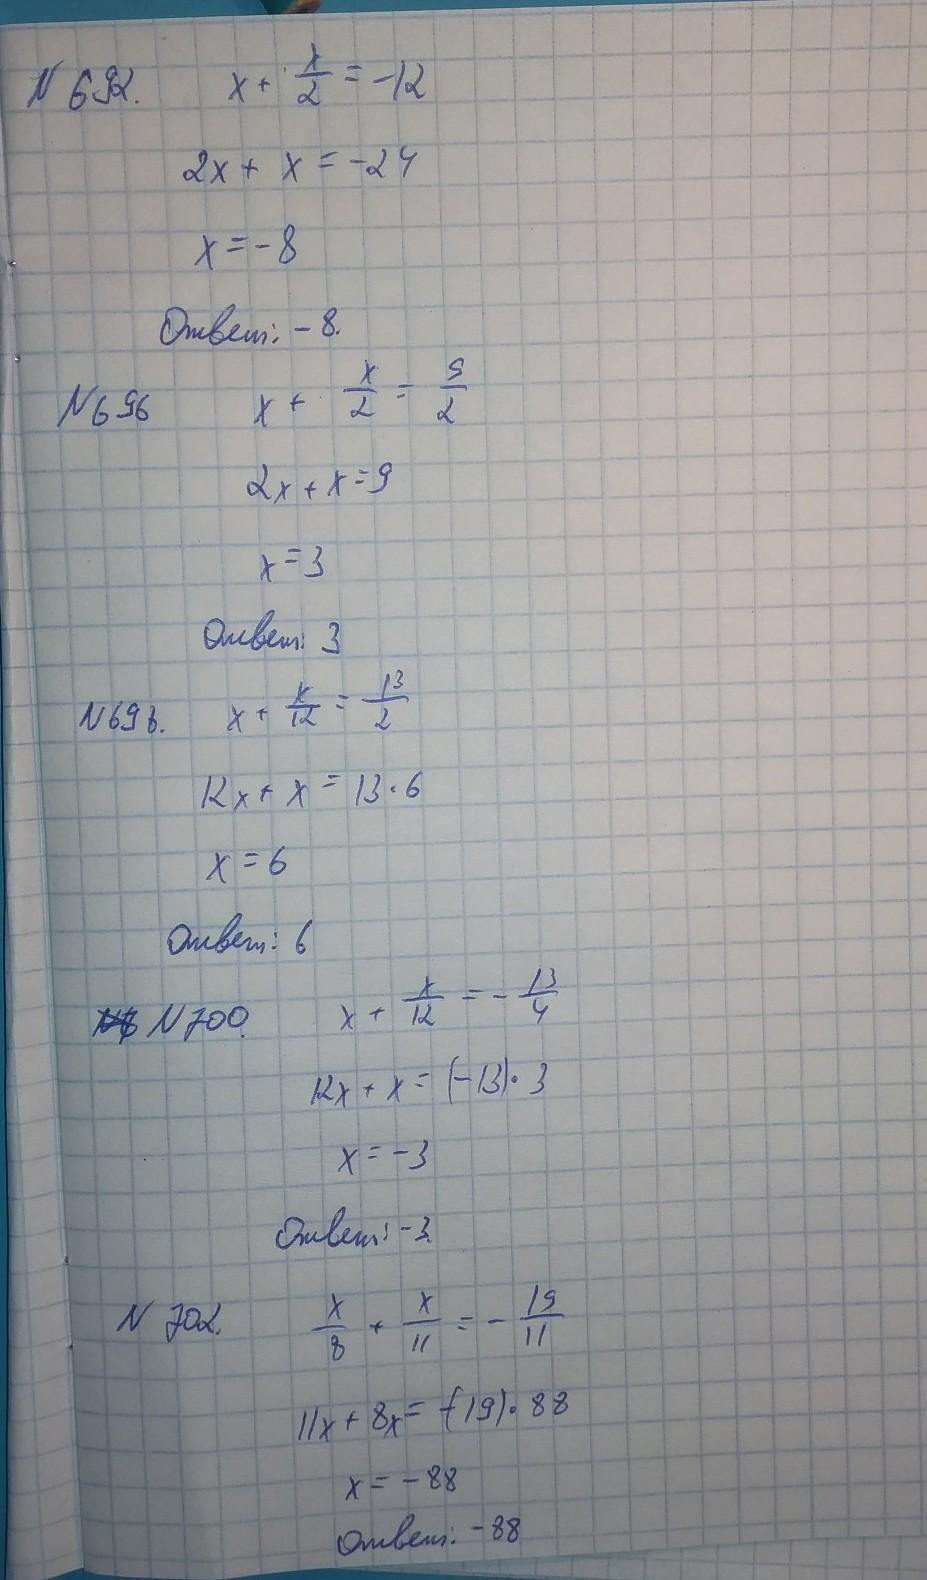 N 692. x + x/2 = -12
2x + x = -24
x = -8
Ответ: -8.
N 696 x + x/2 = 9/2
2x + x = 9
x = 3
Ответ: 3
N 698. x + x/12 = 13/2
12x + x = 13·6
x = 6
Ответ: 6
N 700. x + x/12 = - 13/4
12x + x = (-13)·3
x = -3
Ответ: -3.
N 702. x/8 + x/11 = - 19/11
11x + 8x = (-19)·88
x = -88
Ответ: -88